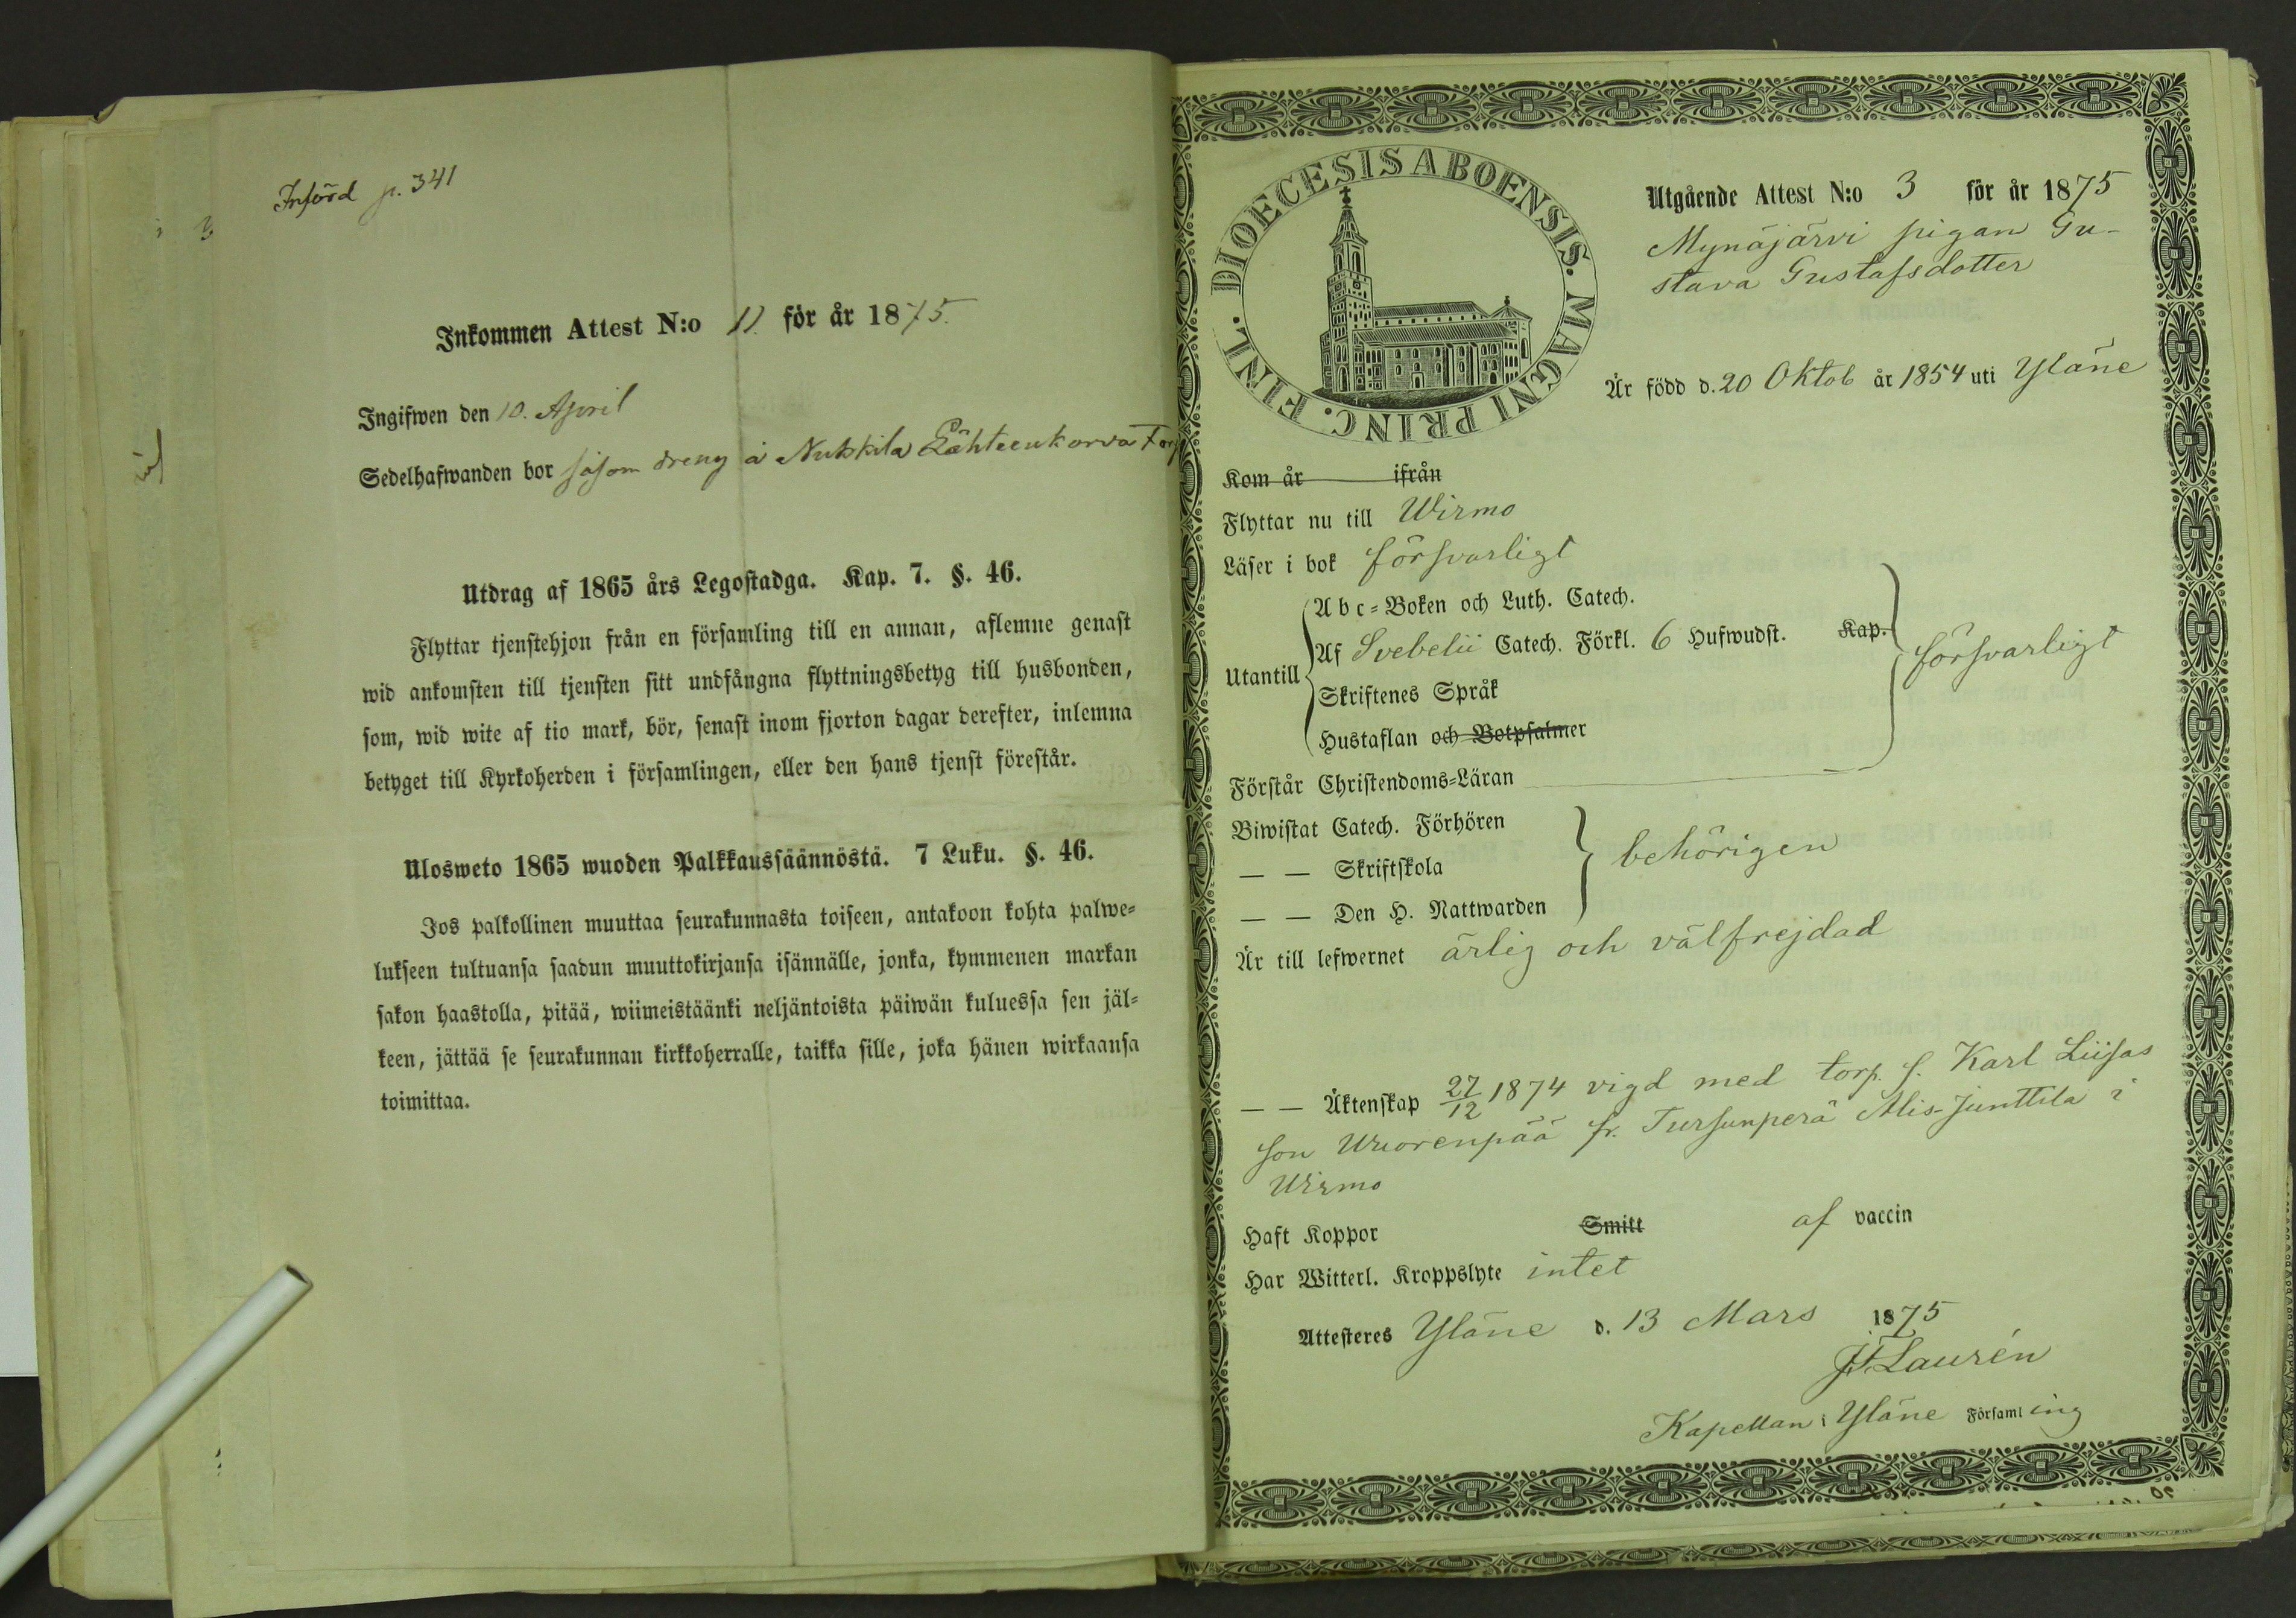 Införd p. 341
Inkommen Attest N:o 11. för år 1875.
Ingifwen den 10. April
Sedelhafwanden bor såsom dreng å Nukkila Lähteenkorva Torp
Utdrag af 1865 års Legostadga. Kap. 7. §. 46.
Flyttar tjenstehjon från en församling till en annan, aflemne genast
wid ankomsten till tjensten sitt undfångna flyttningsbetyg till husbonden,
som, wid wite af tio mark, bör, senast inom fjorton dagar derefter, inlemna
betyget till Kyrkoherden i församlingen, eller den hans tjenst förestår.
Ulosweto 1865 wuoden Palkkaussäännöstä. 7 Luku. §. 46.
Jos palkollinen muuttaa seurakunnasta toiseen, antakoon kohta palwe=
lukseen tultuansa saadun muuttokirjansa isännälle, jonka, kymmenen markan
sakon haastolla, pitää, wiimeistäänki neljäntoista päiwän kuluessa sen jäl=
keen, jättää se seurakunnan kirkkoherralle, taikka sille, joka hänen wirkaansa
toimittaa.
DIOECESIS ABOENSIS. MAGNI PRINC. FINL.
Utgående Attest N:o 3 för år 1875
Mynäjärvi pigan Gu-
stava Gustafsdotter
Är född d. 20 Oktob år 1854 uti Yläne
Kom år ifrån
Flyttar nu till Wirmo
Läser i bok försvarligt
Utantill
Abc=Boken och Luth. Catech.
Af Svebelii Catech. Förkl. 6 Hufwudst. Kap.
Skriftenes Språk
Hustaflan och Botpsalmer
försvarligt
Förstår Christendoms=Läran
Biwistat Catech. Förhören
— — Skriftskola
— — Den H. Nattwarden
behörigen
Är till lefwernet ärlig och välfrejdad
— — Äktenskap 27/12 1874 vigd med torp. s. Karl Liisas
son Wuorenpää fr. Tursunperä Alis-Junttila i
Wirmo
Haft Koppor Smitt af vaccin
Har Witterl. Kroppslyte intet
Attesteres Yläne d. 13 Mars 1875
J. F. Laurén
Kapellan i Yläne Församling